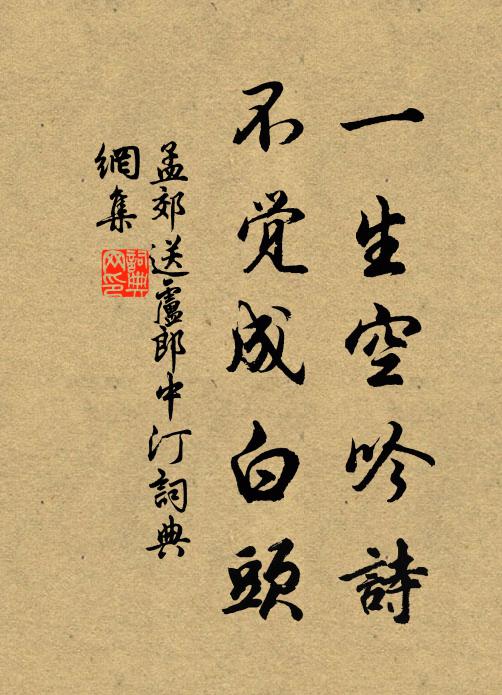 一生空吟詩
不覚成白頭
孟郊送盧郎中汀詞典
網集
詞典
网印